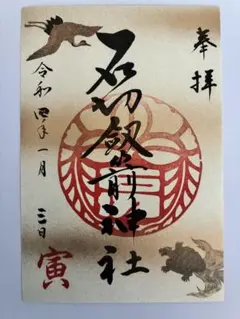 奉拝
石切劔箭神社
令和四年一月三日
寅